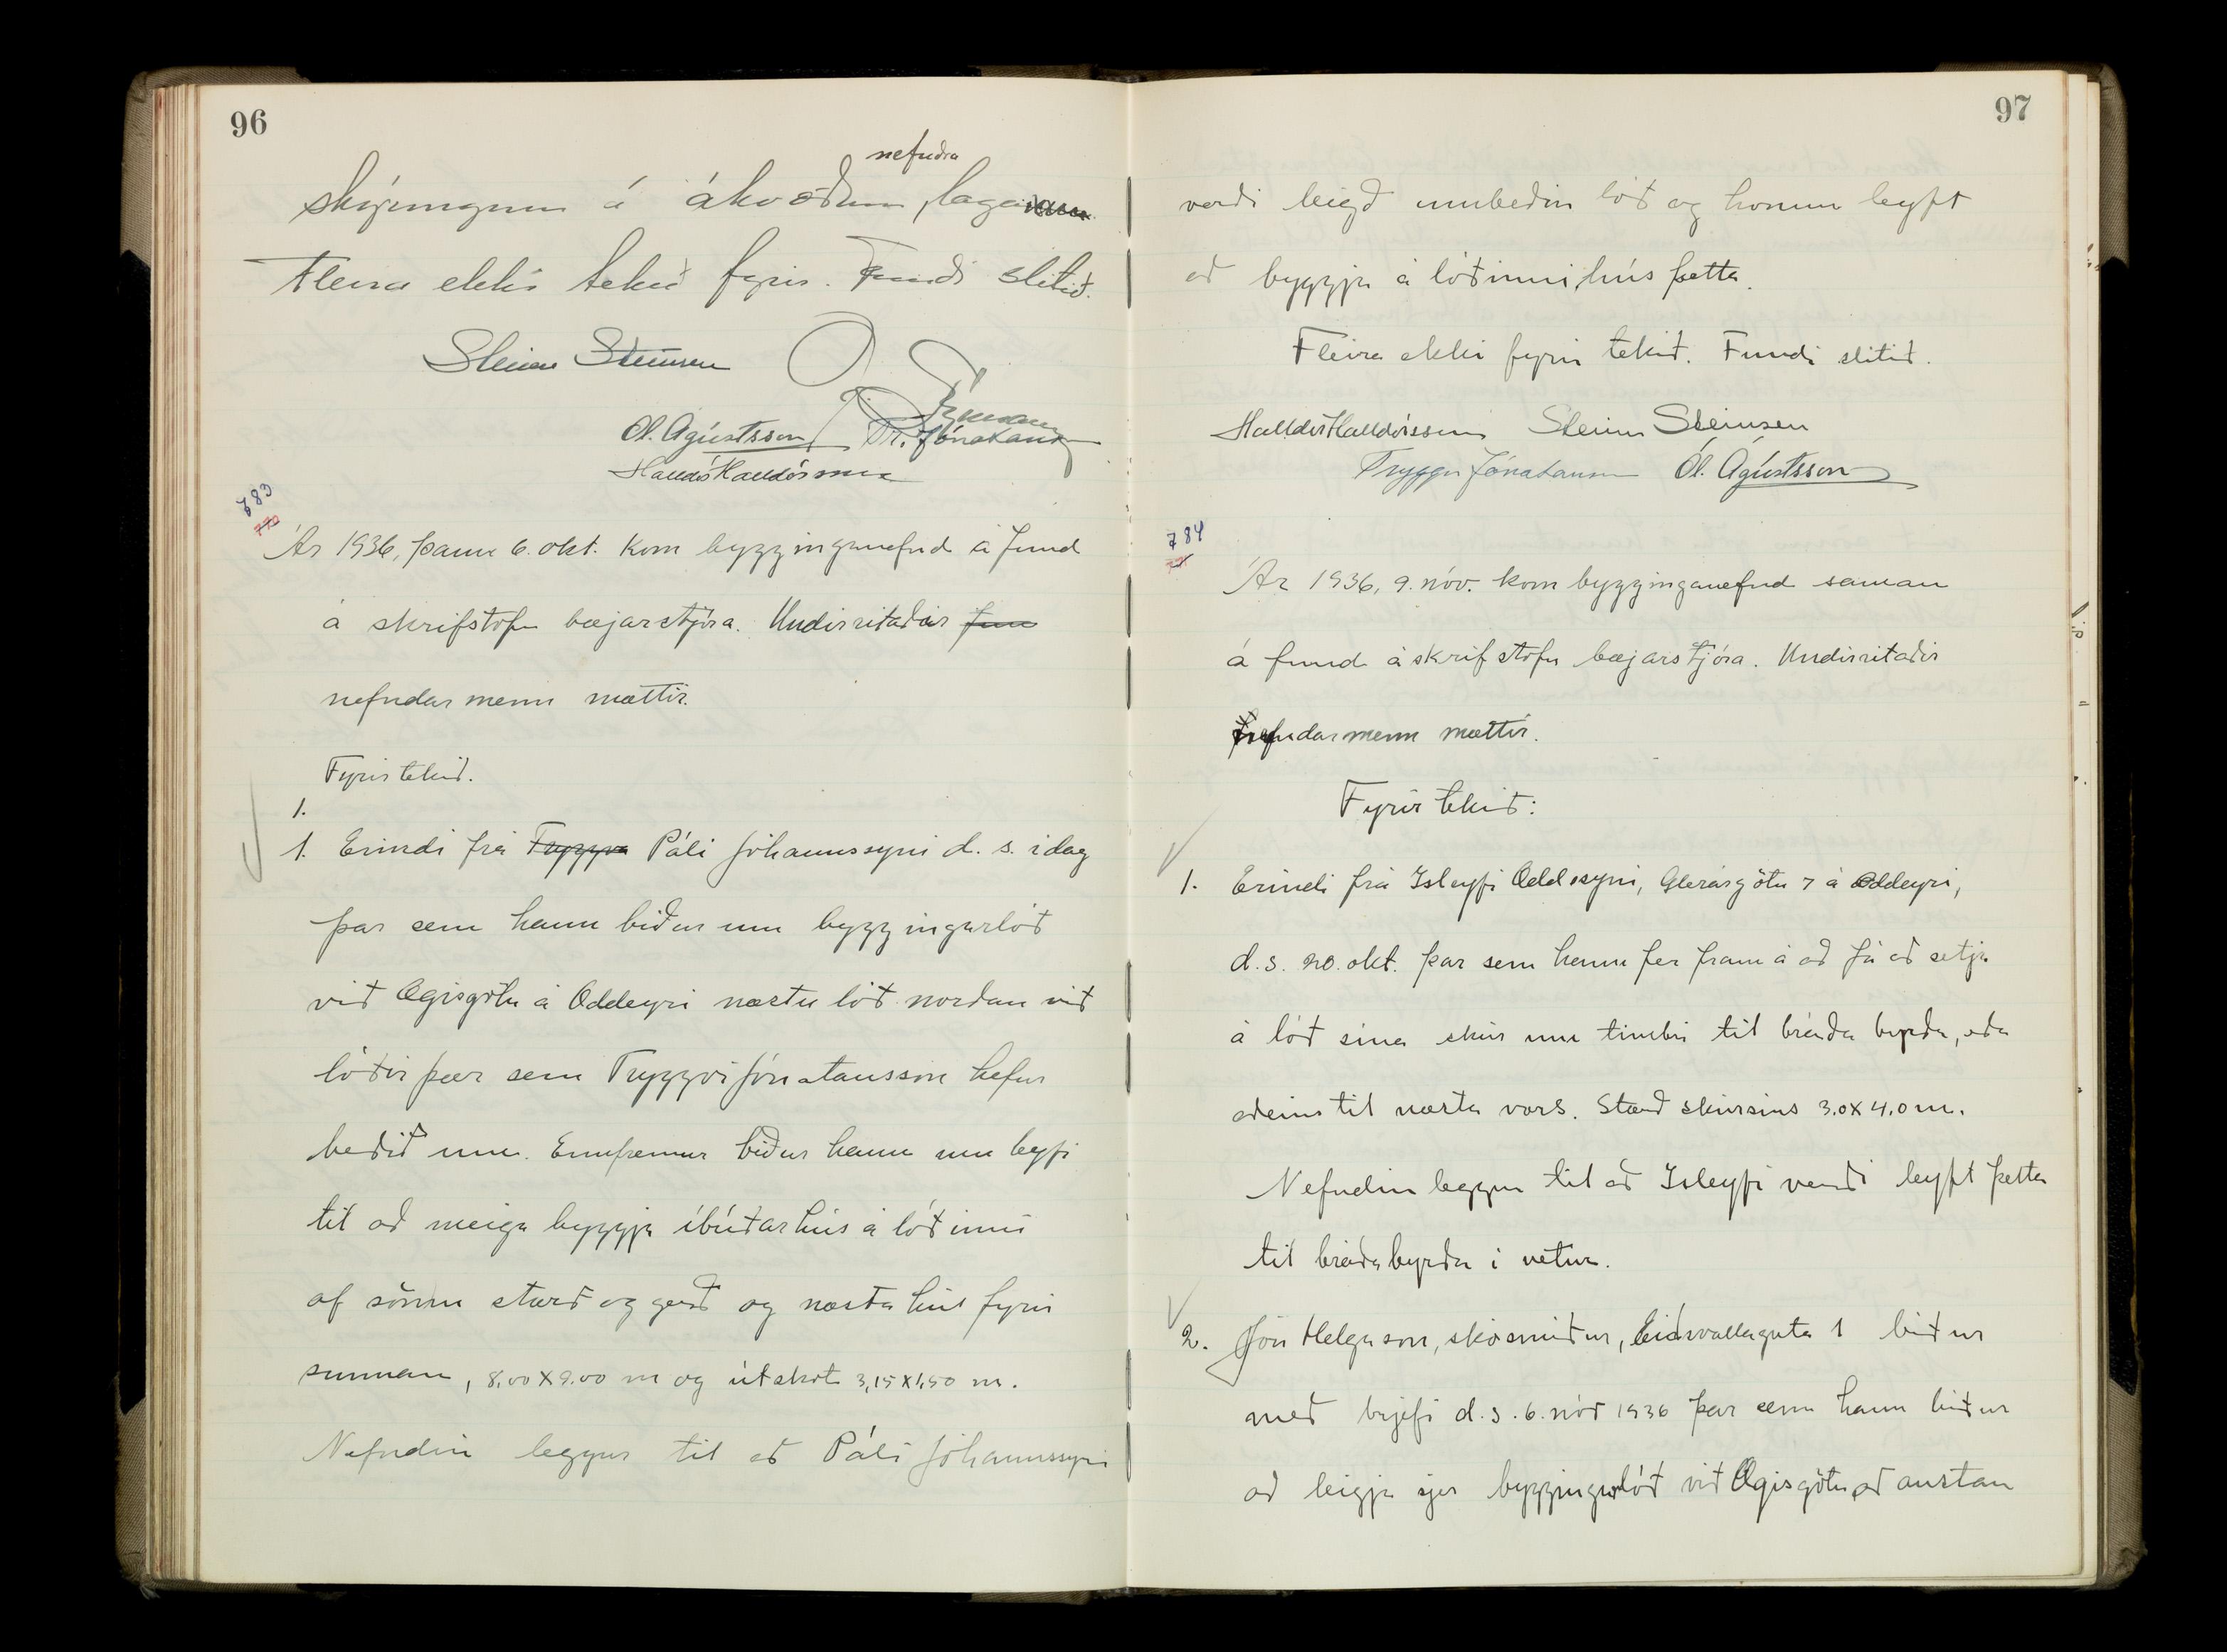 96
nefndra
skýringum á ákvæðum laga
Fleira ekki tekið fyrir. Fundi slitið.
Steinn Steinsen
Ól. Ágústsson Tr. Jónatansson
Halldór Halldórsson
783
770
Ár 1936, þann 6. okt. kom bygginganefnd á fund
á skrifstofu bæjarstjóra. Undirritaðir
nefndarmenn mættir.
Fyrir tekið.
1.
1. Erindi frá Tryggva Páli Jóhannssyni d. s. ídag
þar sem hann biður um byggingarlóð
við Ægisgötu á Oddeyri næstu lóð norðan við
lóðir þær sem Tryggvi Jónatansson hefur
beðið um. Ennfremur biður hann um leyfi
til að meiga byggja íbúðarhús á lóðinni
af sömu stærð og gerð og næsta hús fyrir
sunnan, 8,00 x 9.00 m og útskot 3,15 x 1,50 m.
Nefndin leggur til að Páli Jóhannssyni
97
verði leigð umbeðin lóð og honum leyft
að byggja á lóðinni hús þetta.
Fleira ekki fyrir tekið. Fundi slitið.
Halldór Halldórsson Steinn Steinsen
Tryggvi Jónatansson Ól. Ágústsson
784
771
Ár 1936, 9. nóv. kom bygginganefnd saman
á fund á skrifstofu bæjarstjóra. Undirritaðir
nefndarmenn mættir.
Fyrir tekið:
1. Erindi frá Ísleyfi Oddssyni, Glerárgötu 7 á Oddeyri,
d. s. 20. okt. þar sem hann fer fram á að fá að setja
á lóð sína skúr úr timbri til bráða byrða, eða
aðeins til næsta vors. Stærð skúrsins 3.0 x 4.0 m.
Nefndin leggur til að Ísleyfi verði leyft þetta
til bráðabyrða í vetur.
2. Jón Helgason, skósmiður, Eiðsvallagata 1 biður
með brjefi d. s. 6. nóv 1936 þar sem hann biður
að leigja sjer byggingarlóð við Ægisgötu að austan